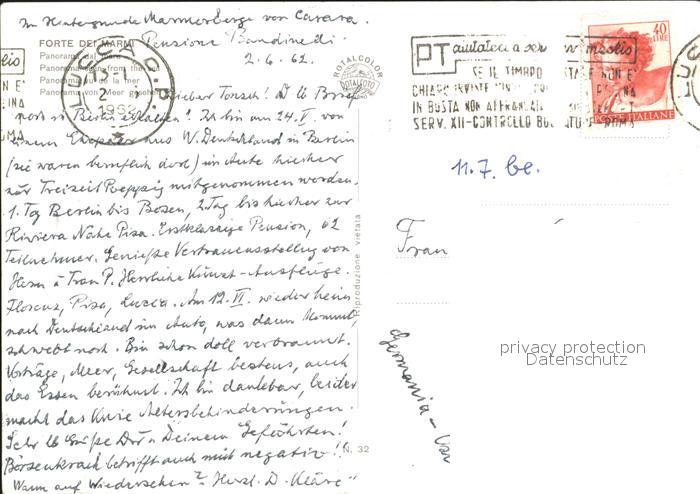 Im Hintergrunde Marmorberge von Carara.
FORTE DEI MARMI
Pensione Bandinelli
Panorama dal mare
Panorama seen from the
Panorama de la mer
Panorama von Meer gesehen
2.6.62.
ROTALCOLOR
ROTALFOTO
LUCCA
1962
PT
aiutateci a servirvi meglio
SE IL TIMBRO
IN BUSTA NON AFFRANCATA
SERV. XII-CONTROLLO
ROMA
40
LIRE
POSTE ITALIANE
11.7. be.
Lieber Torsch! D. lb Brief
noch in Berlin erhalten! Ich bin am 24. V. von
einem Ehepaar aus W. Deutschland in Berlin
(sie waren beruflich dort) im Auto hierher
zur Freizeit mitgenommen worden.
1. Tag Berlin bis Bozen, 2. Tag bis hierher zur
Riviera Nähe Pisa. Erstklassige Pension, 62
Teilnehmer. Genieße von
Herrn u Frau P. Herrliche Kunst-Ausflüge.
Florenz, Pisa, Lucca. Am 12. VI. wieder heim
nach Deutschland im Auto, was dann kommt,
schwebt noch. Bin schon doll verbrannt.
Vorträge, Meer, Gesellschaft bestens, auch
das Essen berühmt. Ich bin dankbar, leider
macht das Knie Altersbehinderungen.
Sehr lb Grüße Dir u Deinem Gefährten!
Börsenkrach betrifft auch mich negativ!!
Wann auf Wiedersehen? Herzl. D. "Kläre"
Riproduzione vietata
N. 32
Frau
Germania -
privacy protection
Datenschutz